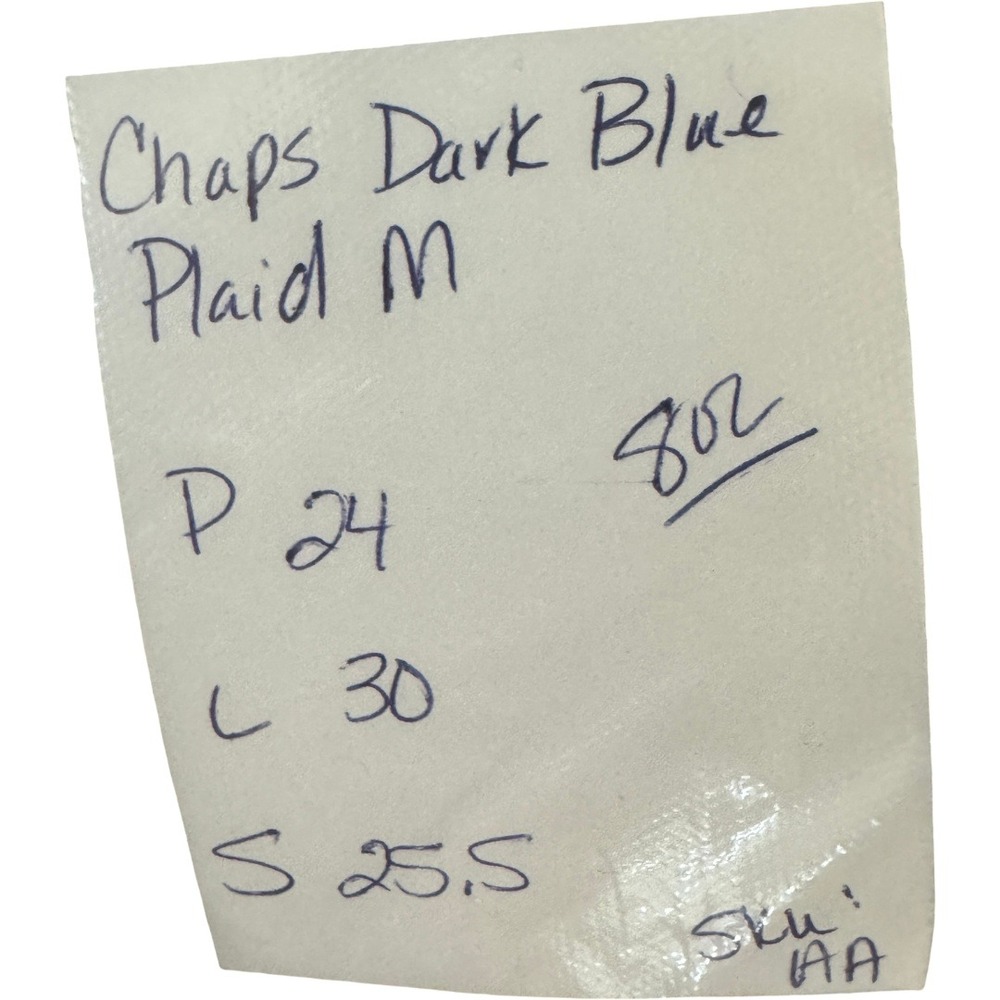 Chaps Dark Blue
Plaid M
8oz
P 24
L 30
S 25.5
SKU:
AA